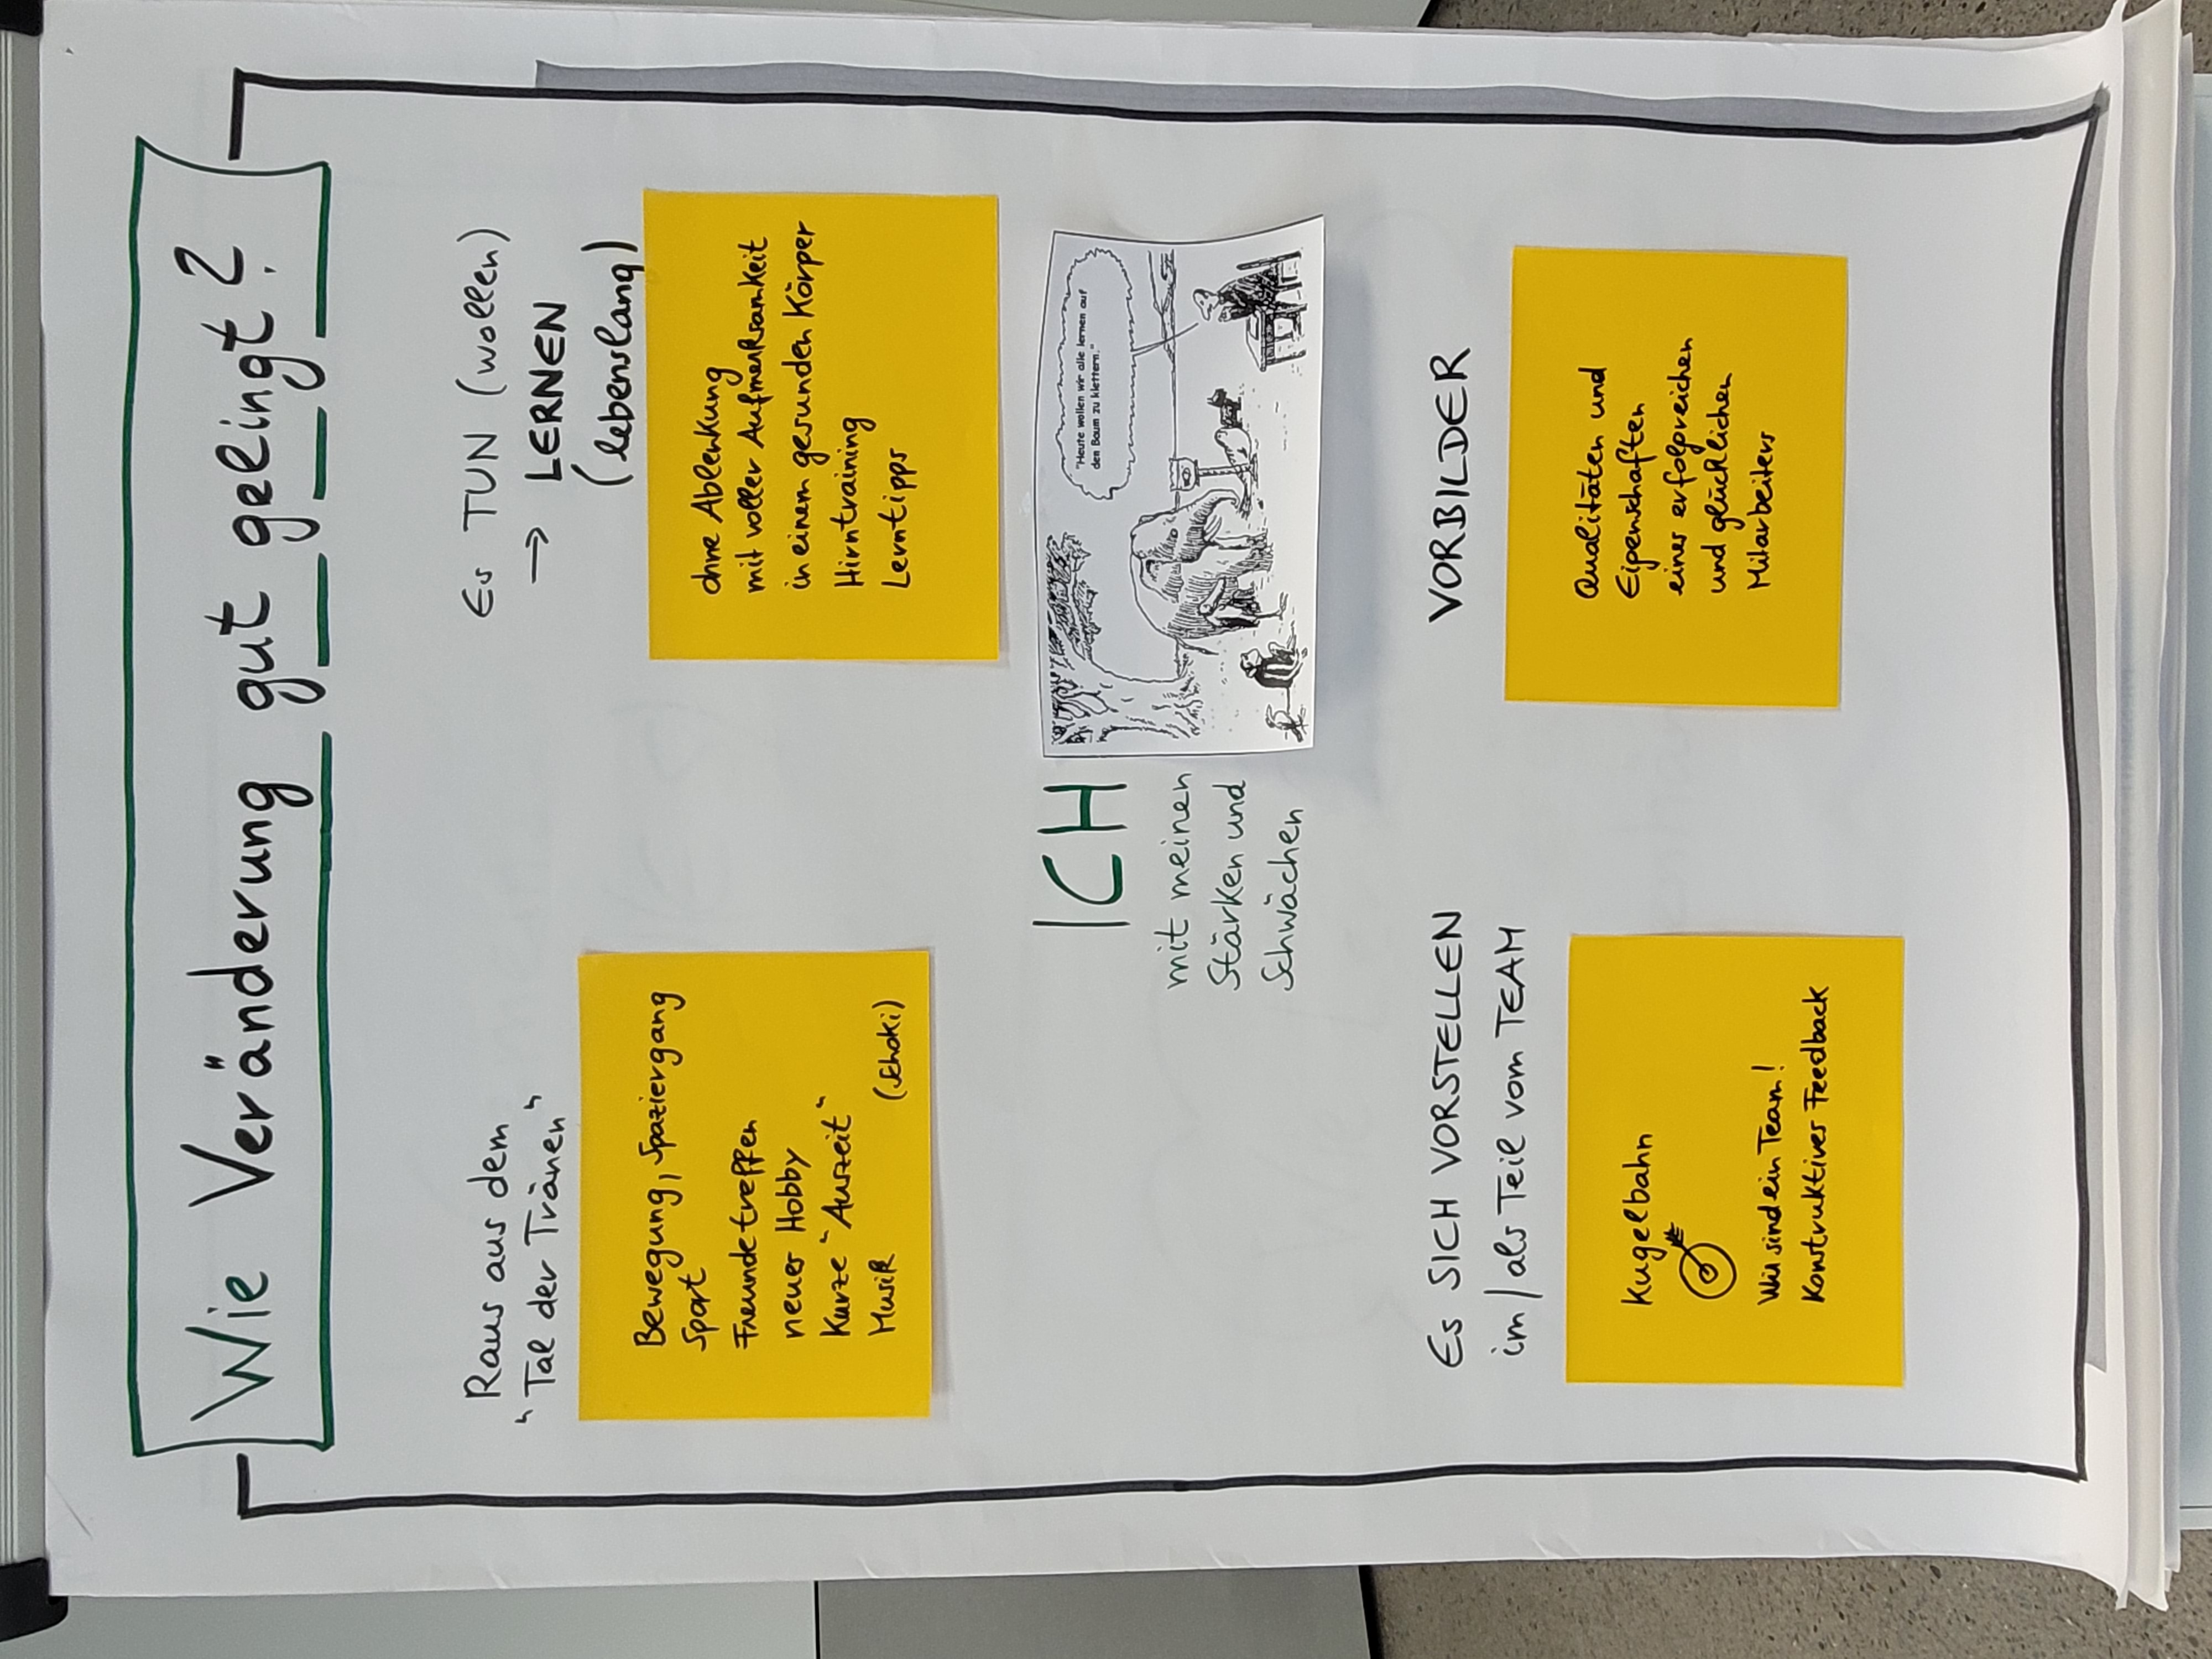 Wie Veränderung gut gelingt?
Raus aus dem
"Tal der Tränen"
Bewegung, Spaziergang
Sport
Freunde treffen
neues Hobby
Kurze "Auszeit"
Musik (Schoki)
Es TUN (wollen)
→ LERNEN
(lebenslang)
ohne Ablenkung
mit voller Aufmerksamkeit
in einem gesunden Körper
Hirntraining
Lerntipps
ICH
mit meinen
Stärken und
Schwächen
"Heute wollen wir alle lernen auf
den Baum zu klettern."
Es SICH VORSTELLEN
im / als Teil vom TEAM
Kugelbahn
Wir sind ein Team!
Konstruktives Feedback
VORBILDER
Qualitäten und
Eigenschaften
eines erfolgreichen
und glücklichen
Mitarbeiters